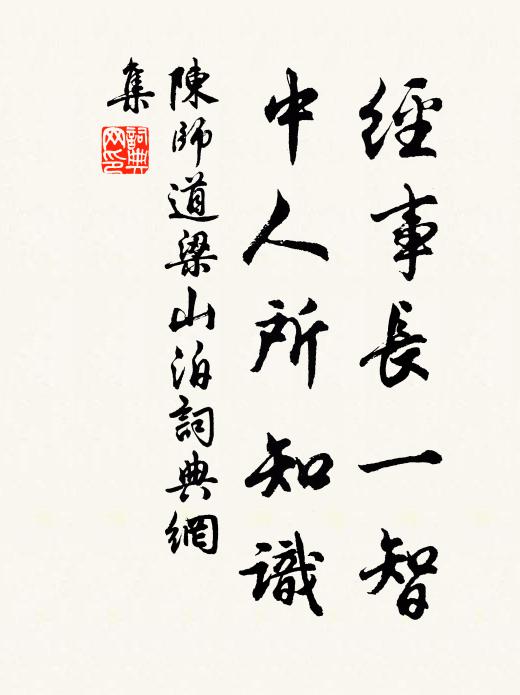 經事長一智
中人所知識
陳師道梁山泊詞典網
集
詞典
网印